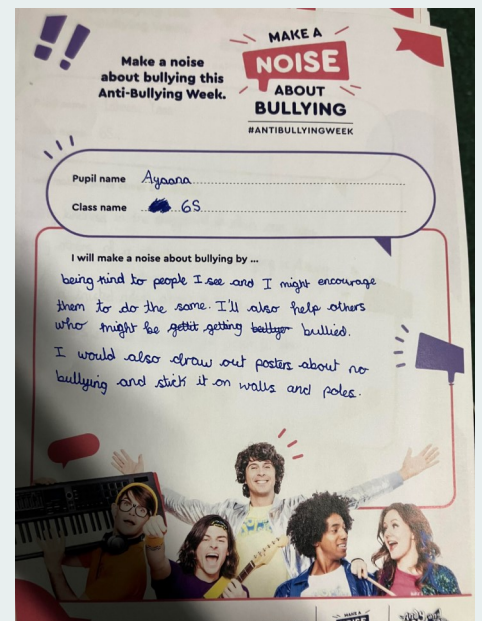 MAKE A
NOISE
ABOUT
BULLYING
#ANTIBULLYINGWEEK
Make a noise
about bullying this
Anti-Bullying Week.
Pupil name Ayaana
Class name 6S
I will make a noise about bullying by ...
being kind to people I see and I might encourage
them to do the same. I'll also help others
who might be gettit getting bullied.
I would also draw out posters about no
bullying and stick it on walls and poles.
MAKE A
NOISE